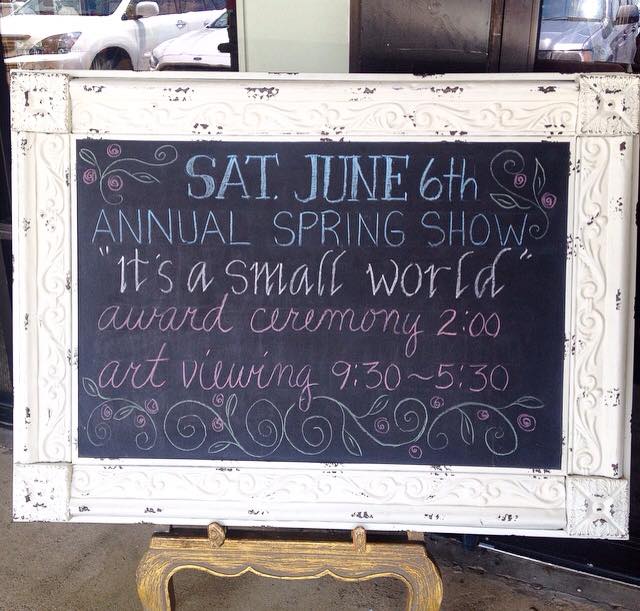 SAT. JUNE 6th
ANNUAL SPRING SHOW
"it's a small world"
award ceremony 2:00
art viewing 9:30~5:30